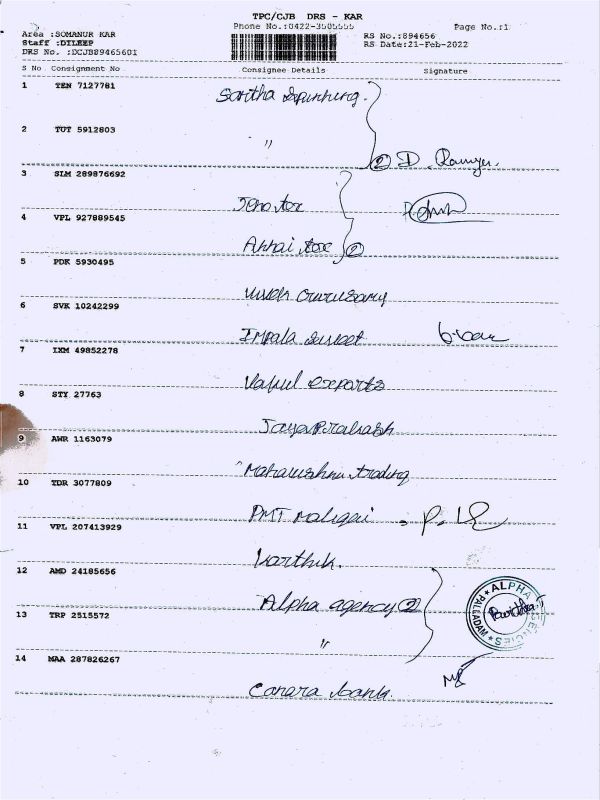 TPC/CJB DRS - KAR
Phone No.:0422-3505555 Page No.:1
Area :SOMANUR KAR
Staff :DILEEP
DRS No. :DCJB89465601
RS No.:894656
RS Date:21-Feb-2022
S No Consignment No Consignee Details Signature
1 TEN 7127781 Saritha Spinning.
2 TUT 5912803 "
② D.
3 SLM 289876692 tex
4 VPL 927889545 tex ②
5 PDK 5930495
6 SVK 10242299 Impala sweet
7 IXM 49852278 Vapul exports
8 STY 27763 Jaya Prakash
9 AWR 1163079 Mahavishnu trading
10 TDR 3077809 PMT Maligai
11 VPL 207413929 Karthik.
12 AMD 24185656 Alpha agency ②
13 TRP 2515572 "
ALPHA AGENCIES
PALLADAM
14 MAA 287826267 Canara bank.